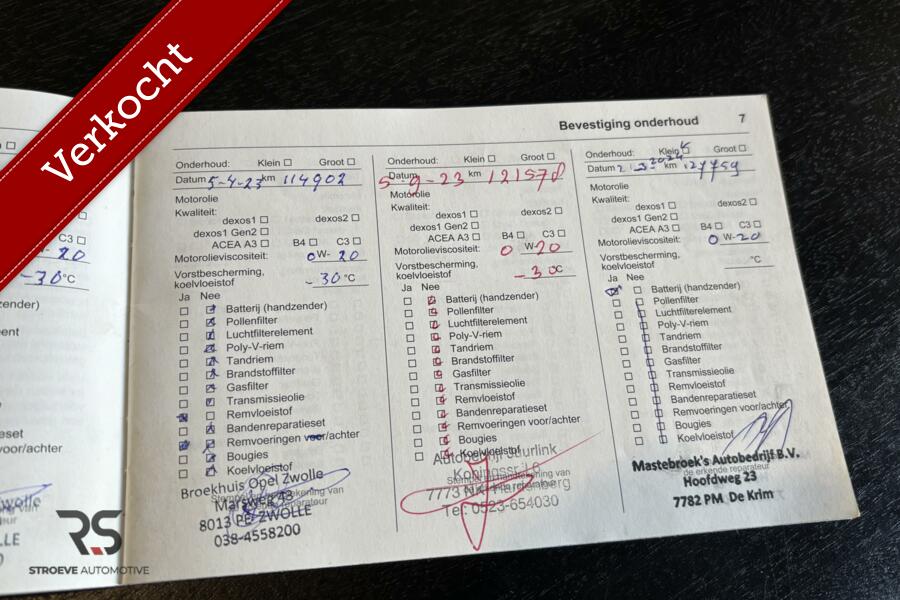 Verkocht
Bevestiging onderhoud 7
Onderhoud: Klein Groot
Datum 5-4-23 km 114902
Motorolie
Kwaliteit:
dexos1 dexos2
dexos1 Gen2
ACEA A3 B4 C3
Motorolieviscositeit: 0W-20
Vorstbescherming,
koelvloeistof -30 °C
Ja Nee
Batterij (handzender)
Pollenfilter
Luchtfilterelement
Poly-V-riem
Tandriem
Brandstoffilter
Gasfilter
Transmissieolie
Remvloeistof
Bandenreparatieset
Remvoeringen voor/achter
Bougies
Koelvloeistof
Broekhuis Opel Zwolle
Marsweg 43
8013 PE ZWOLLE
038-4558200
Onderhoud: Klein Groot
Datum 5-9-23 km
Motorolie
Kwaliteit:
dexos1 dexos2
dexos1 Gen2
ACEA A3 B4 C3
Motorolieviscositeit: 0W-20
Vorstbescherming,
koelvloeistof -30 °C
Ja Nee
Batterij (handzender)
Pollenfilter
Luchtfilterelement
Poly-V-riem
Tandriem
Brandstoffilter
Gasfilter
Transmissieolie
Remvloeistof
Bandenreparatieset
Remvoeringen voor/achter
Bougies
Koelvloeistof
7773 Hardenberg
Tel: 0523-654030
Onderhoud: Klein Groot
Datum km
Motorolie
Kwaliteit:
dexos1 dexos2
dexos1 Gen2
ACEA A3 B4 C3
Motorolieviscositeit: 0W-20
Vorstbescherming,
koelvloeistof °C
Ja Nee
Batterij (handzender)
Pollenfilter
Luchtfilterelement
Poly-V-riem
Tandriem
Brandstoffilter
Gasfilter
Transmissieolie
Remvloeistof
Bandenreparatieset
Remvoeringen voor/achter
Bougies
Koelvloeistof
Mastebroek's Autobedrijf B.V.
de erkende reparateur
Hoofdweg 23
7782 PM De Krim
C3
-20
-30 °C
voor/achter
RS
STROEVE AUTOMOTIVE